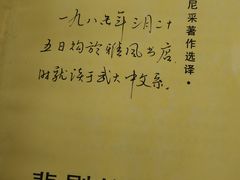 一九八七年三月二十
五日购於雅风书店,
时就读于武大中文系。
尼采著作选译·
悲剧